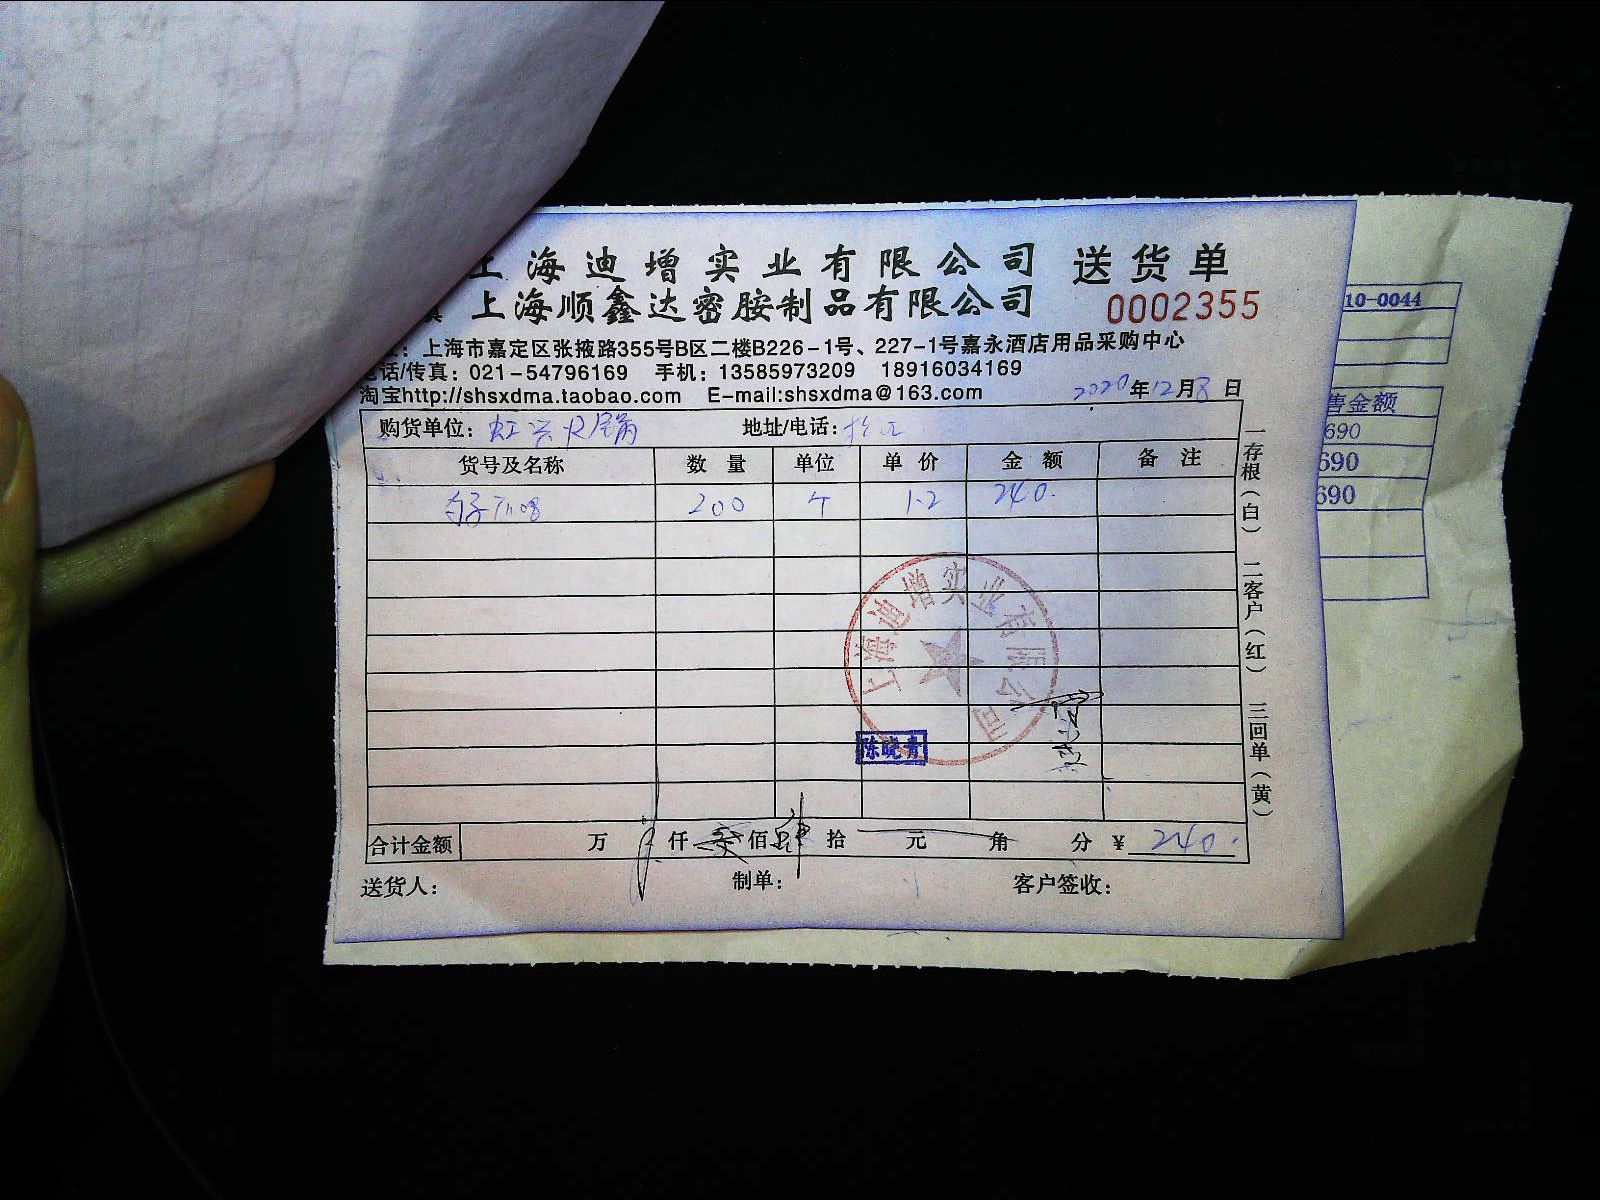 上海迪增实业有限公司 送货单
上海顺鑫达密胺制品有限公司 0002355
上海市嘉定区张掖路355号B区二楼B226-1号、227-1号嘉永酒店用品采购中心
电话/传真：021-54796169 手机：13585973209 18916034169
淘宝http://shsxdma.taobao.com E-mail:shsxdma@163.com 2020年12月8日
购货单位： 火锅 地址/电话：
货号及名称 数量 单位 单价 金额 备注
勺子 200 个 1.2 240.
上海迪增实业有限公司
陈晓青
合计金额 万 仟 佰 肆 拾 元 角 分 ￥ 240.
送货人： 制单： 客户签收：
一存根（白） 二客户（红） 三回单（黄）
10-0044
售金额
690
690
690